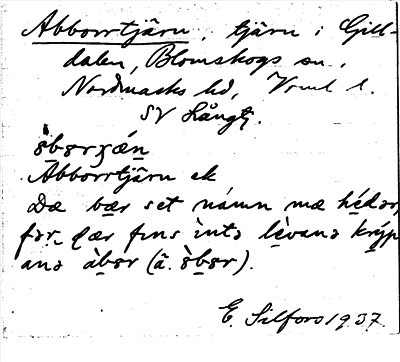 Abborrtjärn, tjärn i Gill-
dalen, Blomskogs sn.,
Nordmarks hd, Vrml l.
SV Långtj.
ȯbɘrʒǽn̲
Abborrtjärn ek
Dæ bær set námn mæ hédər,
fər dær fins ìntə lèvanə krýp
anə àbɘr (ä. òbɘr).
E. Silfors 1937